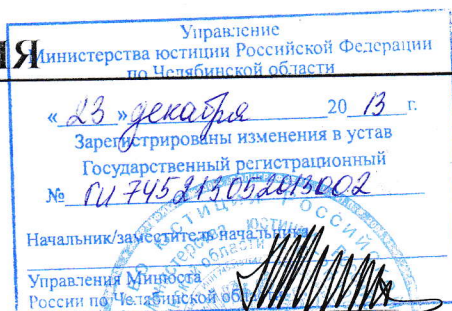 ИЯ
Управление
Министерства юстиции Российской Федерации
по Челябинской области
« 23 » декабря 20 13 г.
Зарегистрированы изменения в устав
Государственный регистрационный
№ RU 745213052013002
Начальник/заместитель начальника
Управления Минюста
России по Челябинской области